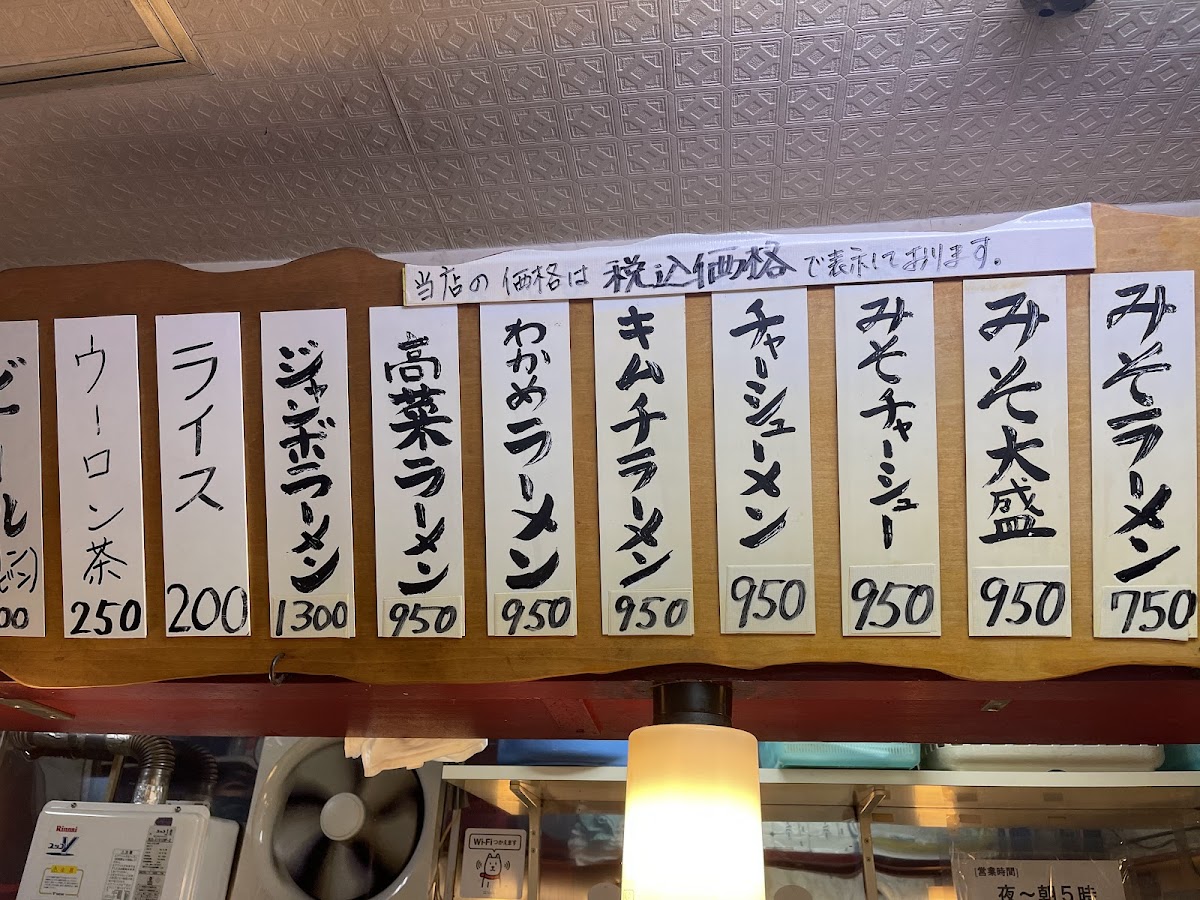 当店の価格は税込価格で表示しております。
みそラーメン
750
みそ大盛
950
みそチャーシュー
950
チャーシューメン
950
キムチラーメン
950
わかめラーメン
950
高菜ラーメン
950
ジャンボラーメン
1300
ライス
200
ウーロン茶
250
ビール
Rinnai
Wi-Fiつかえます
[営業時間]
夜～朝5時